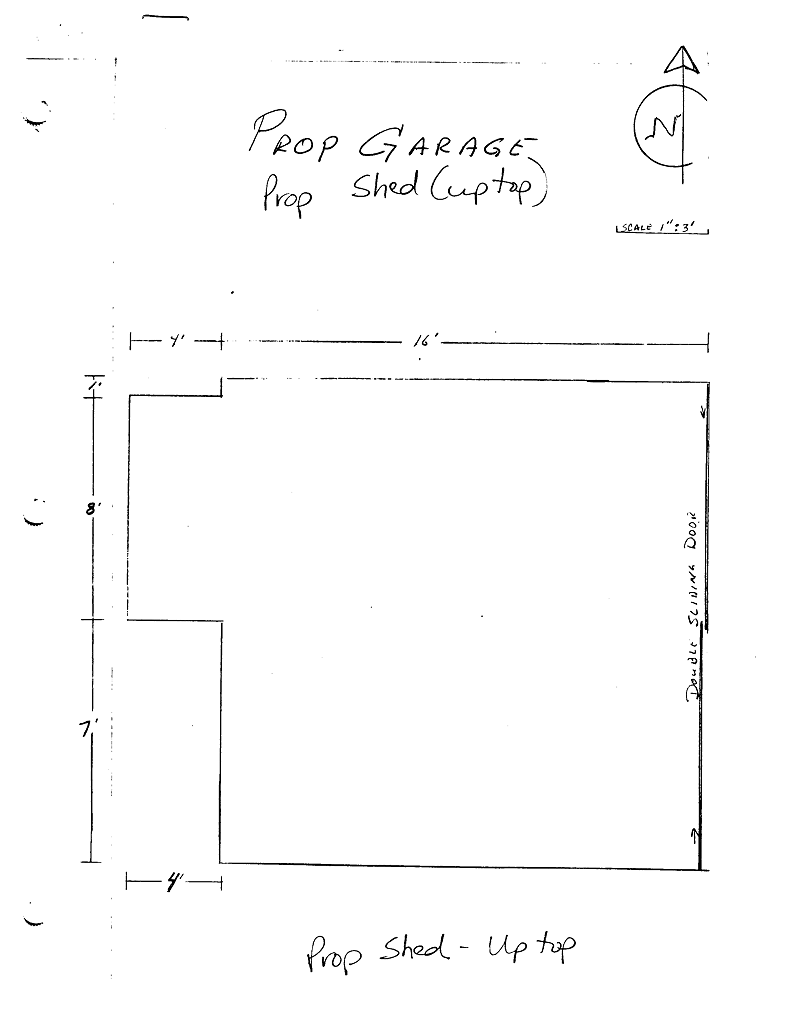 N
PROP GARAGE
Prop Shed (up top)
SCALE 1" : 3'
4'
16'
1'
8'
DOUBLE SLIDING DOOR
7'
4'
Prop Shed - Up top